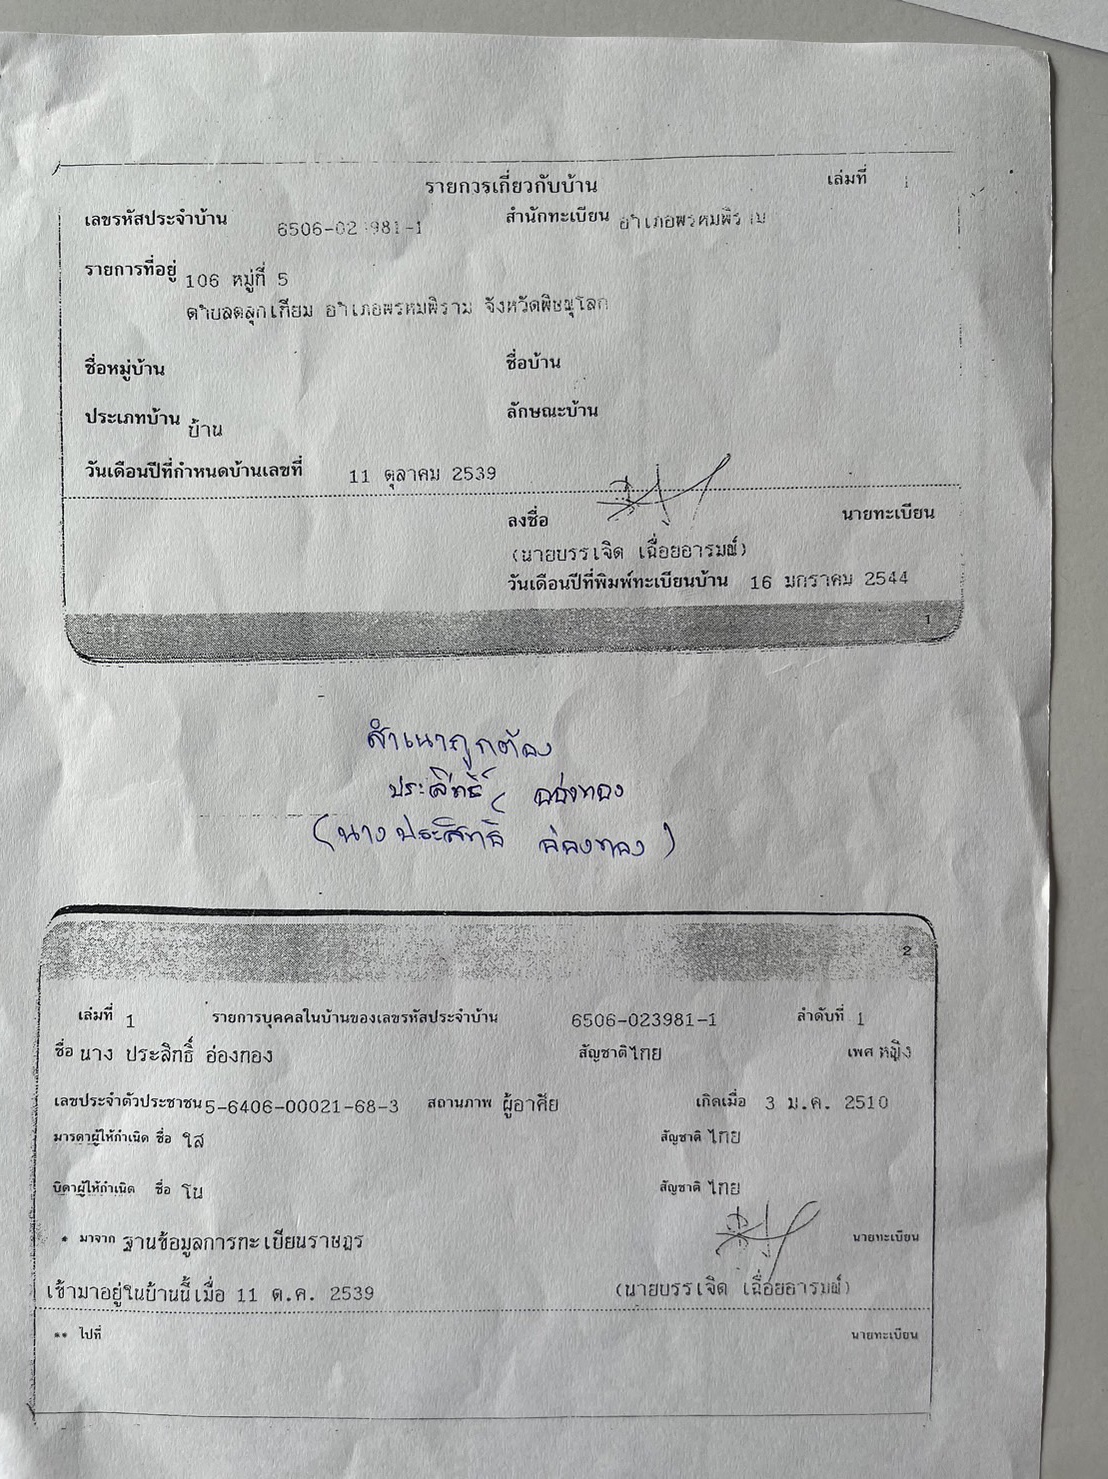 รายการเกี่ยวกับบ้าน เล่มที่ 1
เลขรหัสประจำบ้าน 6506-023981-1 สำนักทะเบียน อำเภอพรหมพิราม
รายการที่อยู่ 106 หมู่ที่ 5
ตำบลดลุกเทียม อำเภอพรหมพิราม จังหวัดพิษณุโลก
ชื่อหมู่บ้าน ชื่อบ้าน
ประเภทบ้าน บ้าน ลักษณะบ้าน
วันเดือนปีที่กำหนดบ้านเลขที่ 11 ตุลาคม 2539
ลงชื่อ นายทะเบียน
(นายบรรเจิด เฉื่อยอารมณ์)
วันเดือนปีที่พิมพ์ทะเบียนบ้าน 16 มกราคม 2544
1
สำเนาถูกต้อง
ประสิทธิ์ อ่องทอง
(นางประสิทธิ์ อ่องทอง)
2
เล่มที่ 1 รายการบุคคลในบ้านของเลขรหัสประจำบ้าน 6506-023981-1 ลำดับที่ 1
ชื่อ นาง ประสิทธิ์ อ่องทอง สัญชาติ ไทย เพศ หญิง
เลขประจำตัวประชาชน 5-6406-00021-68-3 สถานภาพ ผู้อาศัย เกิดเมื่อ 3 ม.ค. 2510
มารดาผู้ให้กำเนิด ชื่อ ใส สัญชาติ ไทย
บิดาผู้ให้กำเนิด ชื่อ โน สัญชาติ ไทย
* มาจาก ฐานข้อมูลการทะเบียนราษฎร นายทะเบียน
เข้ามาอยู่ในบ้านนี้เมื่อ 11 ต.ค. 2539 (นายบรรเจิด เฉื่อยอารมณ์)
** ไปที่ นายทะเบียน